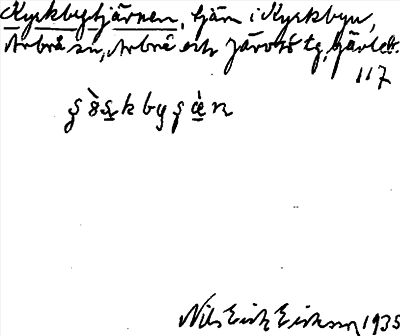 Kyrkbytjärnen, tjärn i Kyrkbyn,
Arbrå sn, Arbrå och Järvsö tg, Gävleb.
117
Nils Erik Eriksson 1935